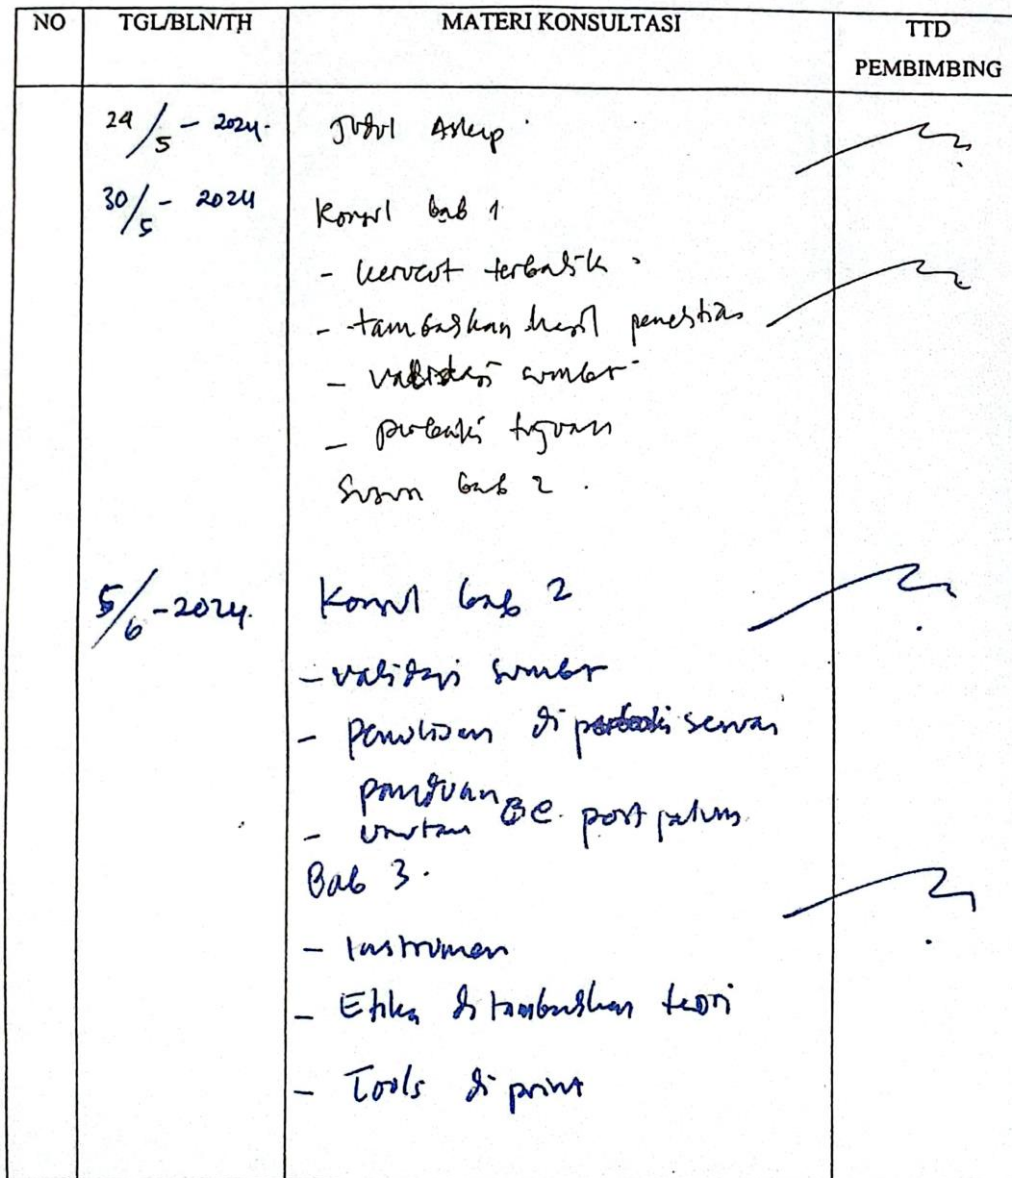 NO TGL/BLN/TH MATERI KONSULTASI TTD PEMBIMBING
24/5 - 2024. Judul Askep
30/5 - 2024 Konsul bab 1
- kerucut terbalik
- tambahkan hasil penelitian
- validasi sumber
- perbaiki tujuan
Susun bab 2.
5/6 - 2024. Konsul bab 2
- validasi sumber
- penulisan di perbaiki sesuai
panduan
- urutan post partum
Bab 3.
- Instrumen
- Etika di tambahkan teori
- Tools di print